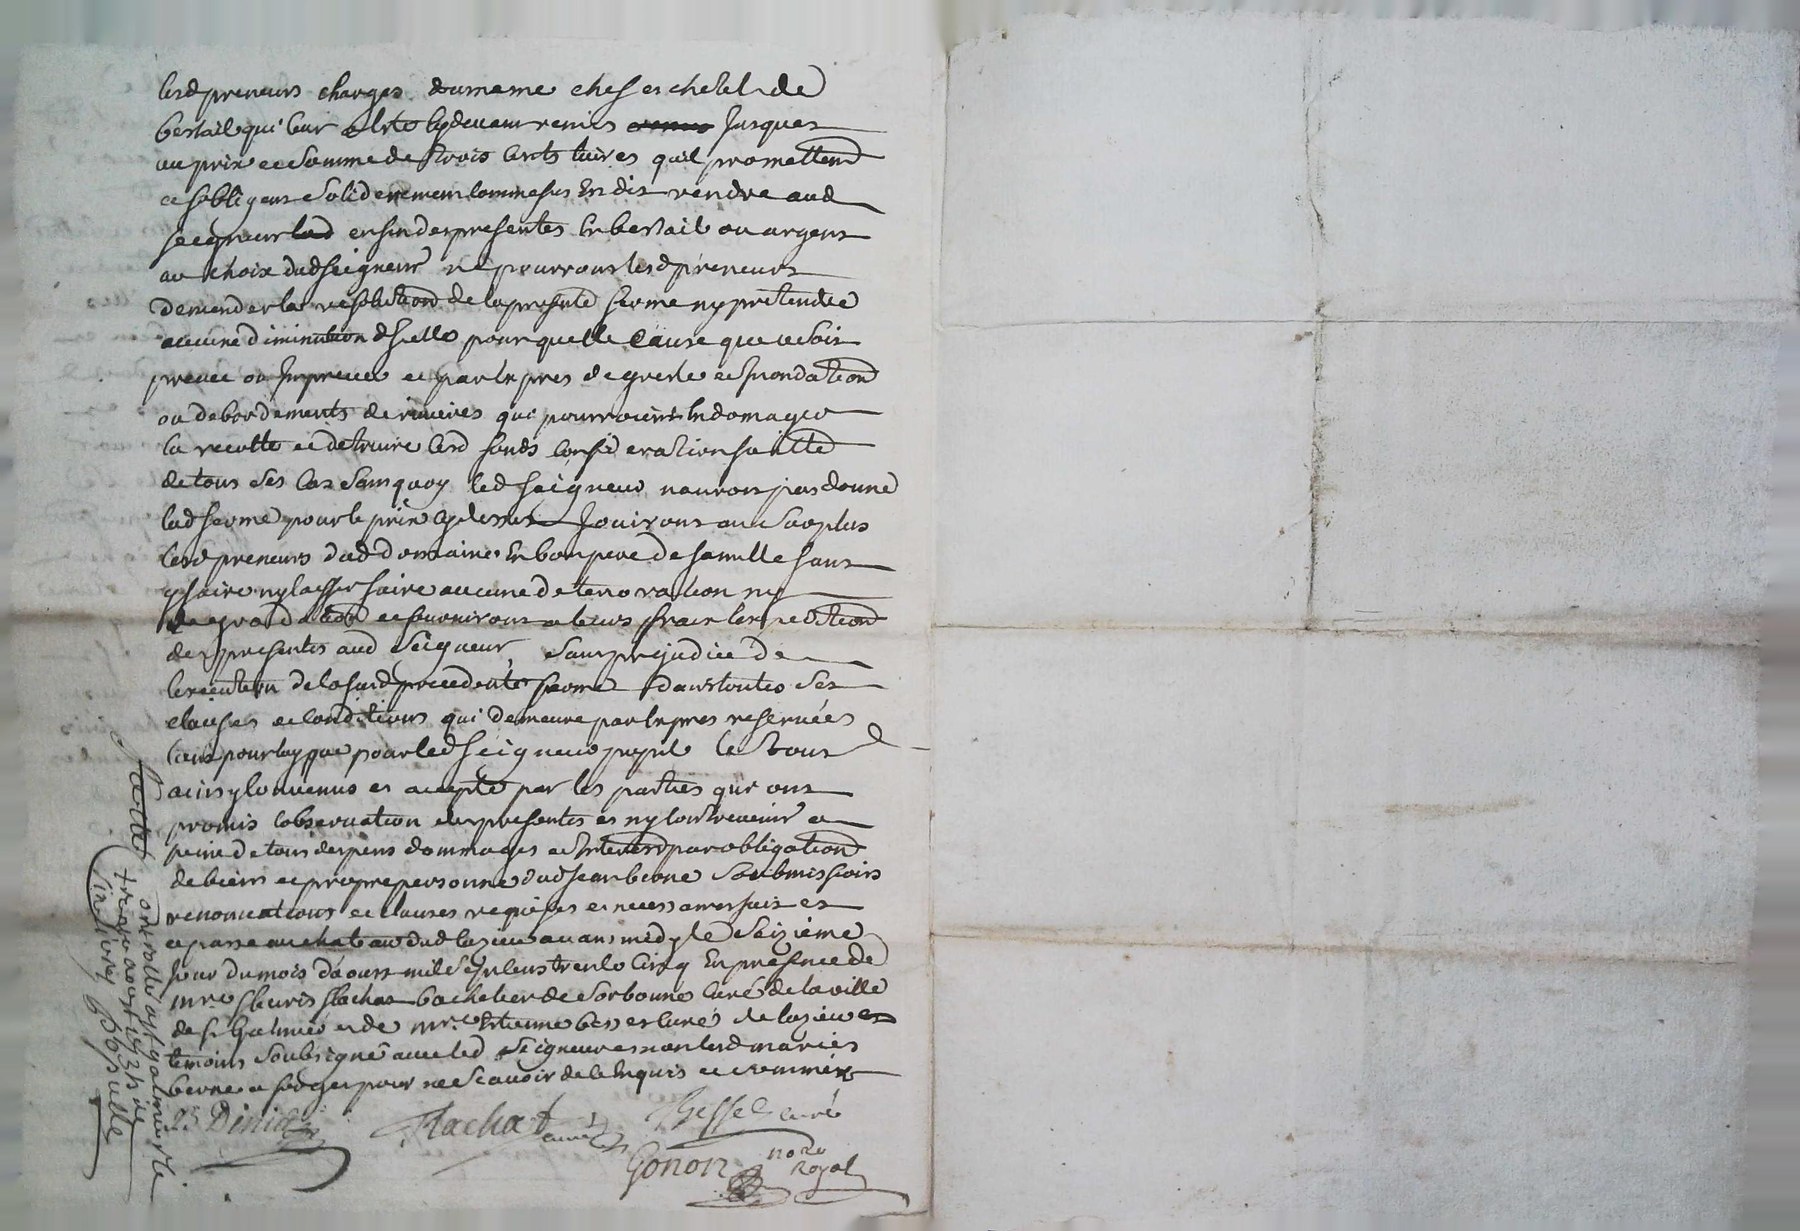 lesd preneurs charges du meme chef et chetel de
bestail qui leur a ete cy devant remis Jusques
au prix et somme de trois cents livres quil promettent
et sobligent solidairement comme sus En dit rendre aud
seigneur en fin des presentes En bestail ou argent
au choix dud seigneur ne pourront lesd preneurs
demender la resolution de la presente ferme ny pretendre
aucune diminution dicelle pour quelle cause que ce soit
preveue ou Impreveue et par Expres de grele et Inondation
ou debordements de rivieres qui pourroient Endomager
la recolte et detruire lesd fonds consideration faitte
de tous ses cas sans quoy led seigneur nauroit pas donné
lad ferme pour le prix cy dessus Jouiront au surplus
lesd preneurs dud domaine En bon pere de famille sans
y faire ny laisser faire aucune deterioration ny
degradation et fourniront a leurs frais lexpedition
des presentes aud seigneur, sans prejudice de
lexecution de lasusd precedente ferme dans toutes ses
clauses et conditions qui demeure par Expres reservées
tant pour luy que pour led seigneur le tout
ainsy convenus et accepté par les parties qui ont
promis lobservation des presentes et ny contrevenir a
peine de tous despens dommages et Interets par obligation
de biens et propre personne dud Jean berne Soubmissions
renonciations et clauses requises et necessaires fait et
et passé au chateau dud avant midy le Seizieme
Jour du mois daoust mil sept cens trente cinq En presence de
Mre fleuris flachat bachelier de Sorbonne Curé de la ville
de st Galmier et de Mre Etienne curé de et
temoins Soubsigné avec led seigneur et non lesd mariés
berne et pour ne scavoir de ce Enquis et sommés
Flachat curé
curé
Gonon nore
Royal
controllé a st galmier le
aoust 1735